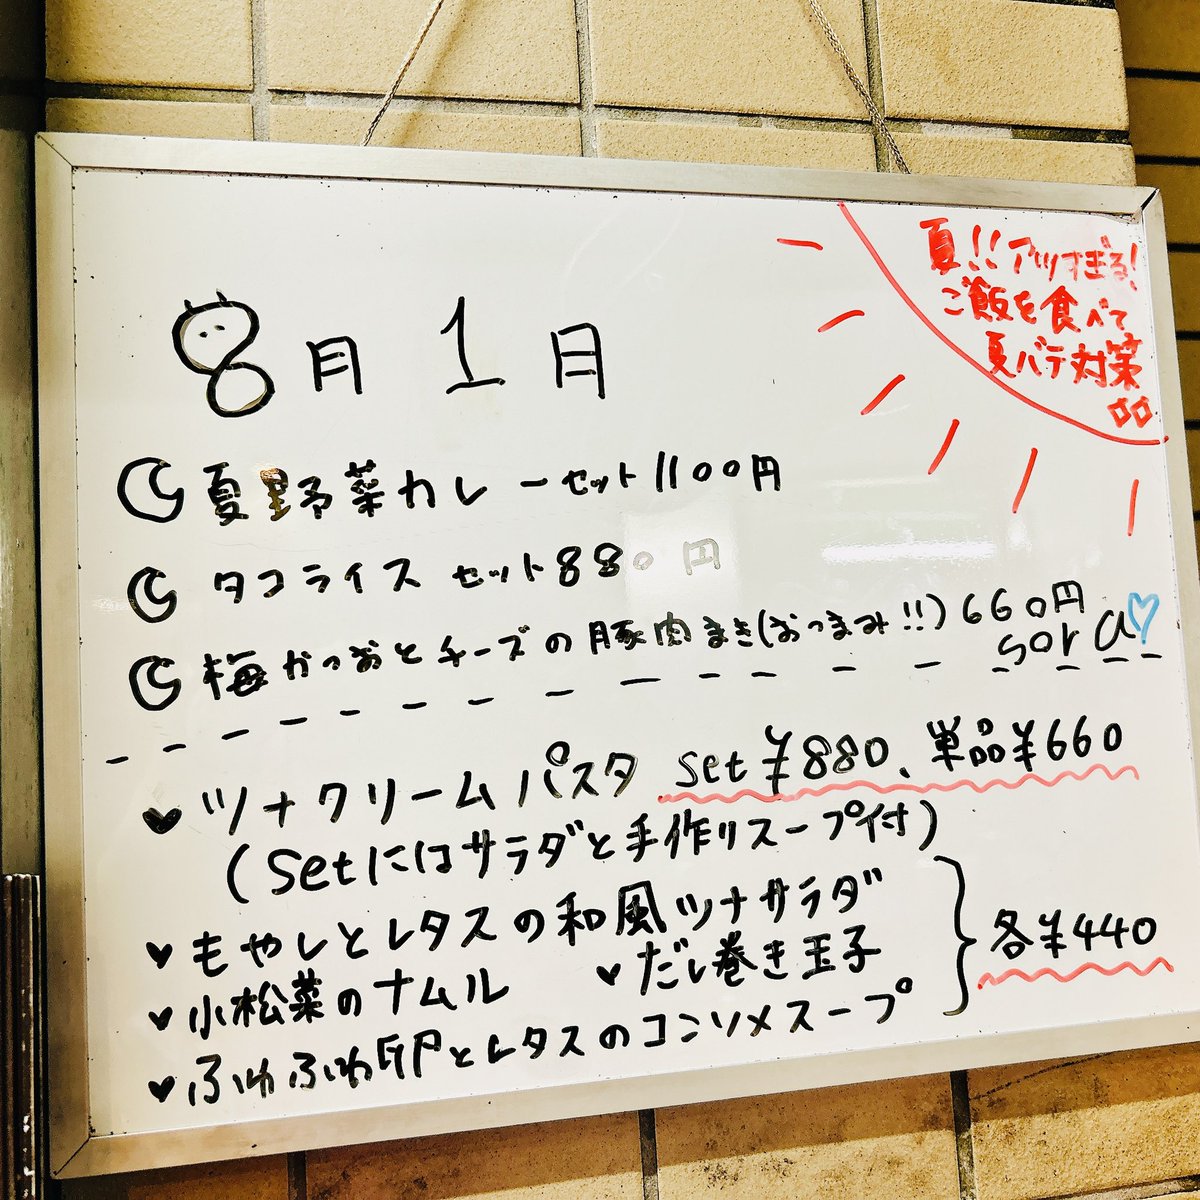 夏!!アツすぎる!
ご飯を食べて
夏バテ対策
8月1日
夏野菜カレーセット1100円
タコライスセット880円
梅かつおとチーズの豚肉まき(おつまみ!!)660円
sora
ツナクリームパスタ set¥880、単品¥660
(setにはサラダと手作りスープ付)
もやしとレタスの和風ツナサラダ
小松菜のナムル だし巻き玉子
ふわふわ卵とレタスのコンソメスープ
各¥440